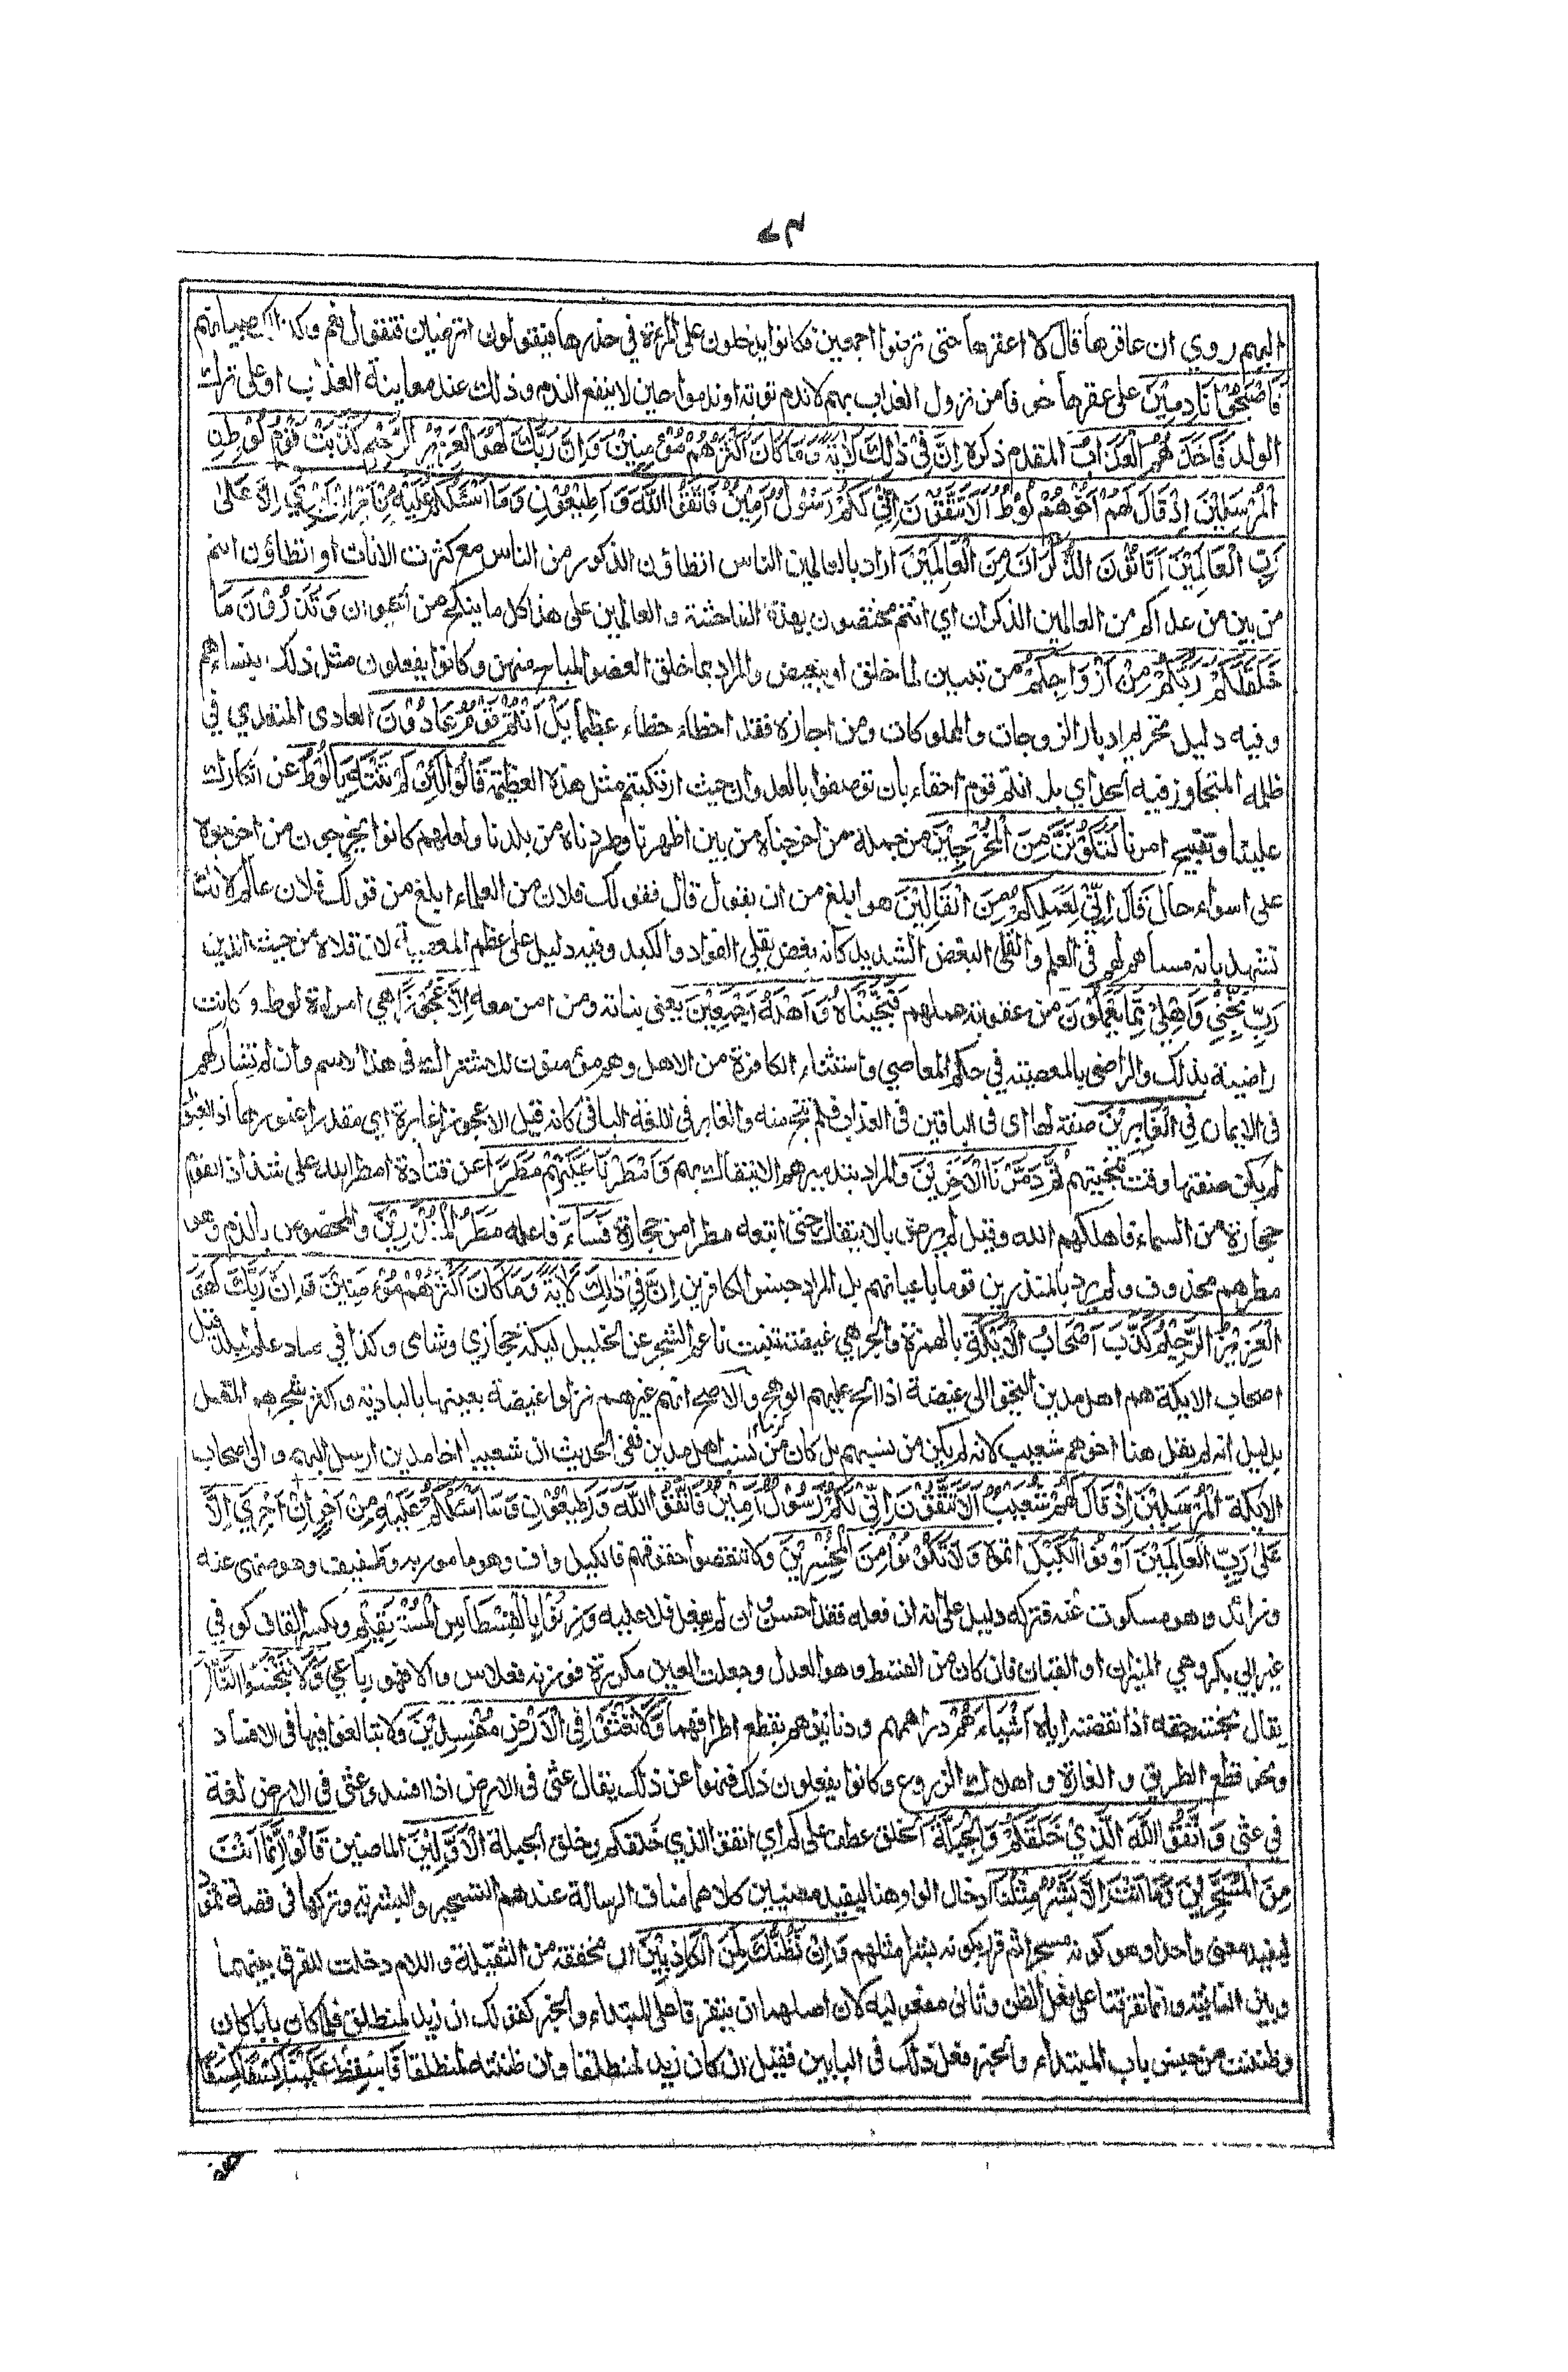 ٧٣
اليهم روي ان عاقرها قال لا اعقرها حتى ترضوا اجمعين فكانوا يدخلون على المرءة في خدرها فيقولون اترضين فتقول نعم وكذلك صبيانهم
فَاَصْبَحُوْا نَادِمِيْنَ على عقرها خوفا من نزول العذاب بهم لا ندم توبة او ندموا حين لا ينفع الندم وذلك عند معاينة العذاب او على ترك
الولد فَاَخَذَهُمُ الْعَذَابُ المقدم ذكره اِنَّ فِيْ ذٰلِكَ لَاٰيَةً وَمَا كَانَ اَكْثَرُهُمْ مُؤْمِنِيْنَ وَاِنَّ رَبَّكَ لَهُوَ الْعَزِيْزُ الرَّحِيْمُ كَذَّبَتْ قَوْمُ لُوْطِنِ
الْمُرْسَلِيْنَ اِذْ قَالَ لَهُمْ اَخُوْهُمْ لُوْطٌ اَلَا تَتَّقُوْنَ اِنِّيْ لَكُمْ رَسُوْلٌ اَمِيْنٌ فَاتَّقُوا اللّٰهَ وَاَطِيْعُوْنِ وَمَا اَسْئَلُكُمْ عَلَيْهِ مِنْ اَجْرٍ اِنْ اَجْرِيَ اِلَّا عَلٰى
رَبِّ الْعَالَمِيْنَ اَتَاْتُوْنَ الذُّكْرَانَ مِنَ الْعَالَمِيْنَ اراد بالعالمين الناس اتطاؤن الذكور من الناس مع كثرت الاناث او اتطاؤن انتم
من بين من عداكم من العالمين الذكران اي انتم مختصون بهذه الفاحشة والعالمين على هذا كل ما ينكح من الحيوان وَتَذَرُوْنَ مَا
خَلَقَ لَكُمْ رَبُّكُمْ مِنْ اَزْوَاجِكُمْ من تبيين لما خلق او تبعيض والمراد بما خلق العضو المباح منهن وكانوا يفعلون مثل ذلك بنساءهم
وفيه دليل تحريم ادبار الزوجات والمملوكات ومن اجازه فقد اخطاء خطاء عظيما بَلْ اَنْتُمْ قَوْمٌ عَادُوْنَ العادى المتعدي في
ظلمه المتجاوز فيه الحد اي بل انتم قوم احقاء بان توصفوا بالعدوان حيث ارتكبتم مثل هذه العظيمة قَالُوْا لَئِنْ لَمْ تَنْتَهِ يَا لُوْطُ عن انكارك
علينا وتقبيح امرنا لَتَكُوْنَنَّ مِنَ الْمُخْرَجِيْنَ من جملة من اخرجناه من بين اظهرنا وطردناه من بلدنا ولعلهم كانوا يخرجون من اخرجوه
على اسواء حال قَالَ اِنِّيْ لِعَمَلِكُمْ مِنَ الْقَالِيْنَ هو ابلغ من ان يقول قال فقولك فلان من العلماء ابلغ من قولك فلان عالم لانك
تشهد بانه مساهم لهم في العلم والقلى البغض الشديد كانه بغض يقلى الفواد والكبد وفيه دليل على عظم المعصية لان قلاه من حيث الدين
رَبِّ نَجِّنِيْ وَاَهْلِيْ مِمَّا يَعْمَلُوْنَ من عقوبة عملهم فَنَجَّيْنَاهُ وَاَهْلَهُ اَجْمَعِيْنَ يعني بناته ومن امن معه اِلَّا عَجُوْزًا هي امراة لوط وكانت
راضية بذلك والراضى بالمعصية في حكم المعاصي واستثناء الكافرة من الاهل وهم مؤمنون للاشتراك في هذا الاسم وان لم تشاركهم
فى الايمان فِى الْغَابِرِيْنَ صفة لها اى فى الباقين فى العذاب فلم تنج منه والغابر فى اللغة الباقى كانه قيل الا عجوزا غابرة اي مقدرا غبورها اذ الغبور
لم يكن صفتها وقت تنجيتهم ثُمَّ دَمَّرْنَا الْاٰخَرِيْنَ والمراد بتدميرهم الايتفاك بهم وَاَمْطَرْنَا عَلَيْهِمْ مَطَرًا عن قتادة امطر الله على شذاذ القوم
حجارة من السماء فاهلكهم الله وقيل لم يرض بالايتفاك حتى اتبعه مطرا من حجارة فَسَاءَ فاعله مَطَرُ الْمُنْذَرِيْنَ والمخصوص بالذم وهو
مطرهم محذوف ولم يرد بالمنذرين قوما باعيانهم بل المراد جنس الكافرين اِنَّ فِيْ ذٰلِكَ لَاٰيَةً وَمَا كَانَ اَكْثَرُهُمْ مُؤْمِنِيْنَ وَاِنَّ رَبَّكَ لَهُوَ
الْعَزِيْزُ الرَّحِيْمُ كَذَّبَ اَصْحَابُ الْاَيْكَةِ بالهمزة والجر هي غيضة تنبت ناعم الشجر عن الخليل ليكة حجازي وشامى وكذا في صاد علم لبلد قيل
اصحاب الايكة هم اهل مدين التجؤا الى غيضة اذ الح عليهم الوهج والاصح انهم غيرهم نزلوا غيضة بعينها بالبادية واكثر شجرهم المقل
بدليل انه لم يقل هنا اخوهم شعيب لانه لم يكن من نسبهم بل كان من نسب اهل مدين ففى الحديث ان شعيبا اخا مدين ارسل اليهم والى اصحاب
الايكة الْمُرْسَلِيْنَ اِذْ قَالَ لَهُمْ شُعَيْبٌ اَلَا تَتَّقُوْنَ اِنِّيْ لَكُمْ رَسُوْلٌ اَمِيْنٌ فَاتَّقُوا اللّٰهَ وَاَطِيْعُوْنِ وَمَا اَسْئَلُكُمْ عَلَيْهِ مِنْ اَجْرٍ اِنْ اَجْرِيَ اِلَّا
عَلٰى رَبِّ الْعَالَمِيْنَ اَوْفُوا الْكَيْلَ اتموه وَلَا تَكُوْنُوْا مِنَ الْمُخْسِرِيْنَ ولا تنقصوا حقوقهم فالكيل واف وهو مامور به وطفيف وهو منهى عنه
وزائد وهو مسكوت عنه فتركه دليل على انه ان فعله فقد احسن وان لم يفعل فلا عليه وَزِنُوْا بِالْقِسْطَاسِ الْمُسْتَقِيْمِ وبكسر القاف كوفي
غير ابي بكر وهي الميزان او القبان فان كان من القسط وهو العدل وجعلت العين مكررة فوزنه فعلاس والا فهو رباعي وَلَا تَبْخَسُوا النَّاسَ
يقال بخسته حقه اذا نقصته اياه اَشْيَاءَهُمْ دراهمهم ودنانيرهم بقطع اطرافهما وَلَا تَعْثَوْا فِى الْاَرْضِ مُفْسِدِيْنَ ولا تبالغوا فيها فى الافساد
ونحو قطع الطريق والغارة واهلاك الزروع وكانوا يفعلون ذلك فنهوا عن ذلك يقال عثى فى الارض اذا افسد وعثى فى الارض لغة
فى عثى وَاتَّقُوا اللّٰهَ الَّذِيْ خَلَقَكُمْ وَالْجِبِلَّةَ الخلق عطف على كم اي اتقوا الذي خلقكم وخلق الجبلة الْاَوَّلِيْنَ الماضين قَالُوْا اِنَّمَا اَنْتَ
مِنَ الْمُسَحَّرِيْنَ وَمَا اَنْتَ اِلَّا بَشَرٌ مِثْلُنَا ادخال الواو هنا ليفيد معنيين كلاهما مناف الرسالة عندهم التسحير والبشرية وتركها فى قصة ثمود
ليفيد معنى واحدا وهو كونه مسحرا ثم قرر بكونه بشرا مثلهم وَاِنْ نَظُنُّكَ لَمِنَ الْكَاذِبِيْنَ ان مخففة من الثقيلة واللام دخلت للفرق بينهما
وبين النافية وانما تفرقتا على فعل الظن وثانى مفعوليه لان اصلهما ان يتفرقا على المبتداء والخبر كقولك ان زيد لمنطلق فلما كان بابا كان
وظننت من جنس باب المبتداء والخبر فعل ذلك فى البابين فقيل ان كان زيد لمنطلقا وان ظننته لمنطلقا فَاَسْقِطْ عَلَيْنَا كِسَفًا كِسَفًا